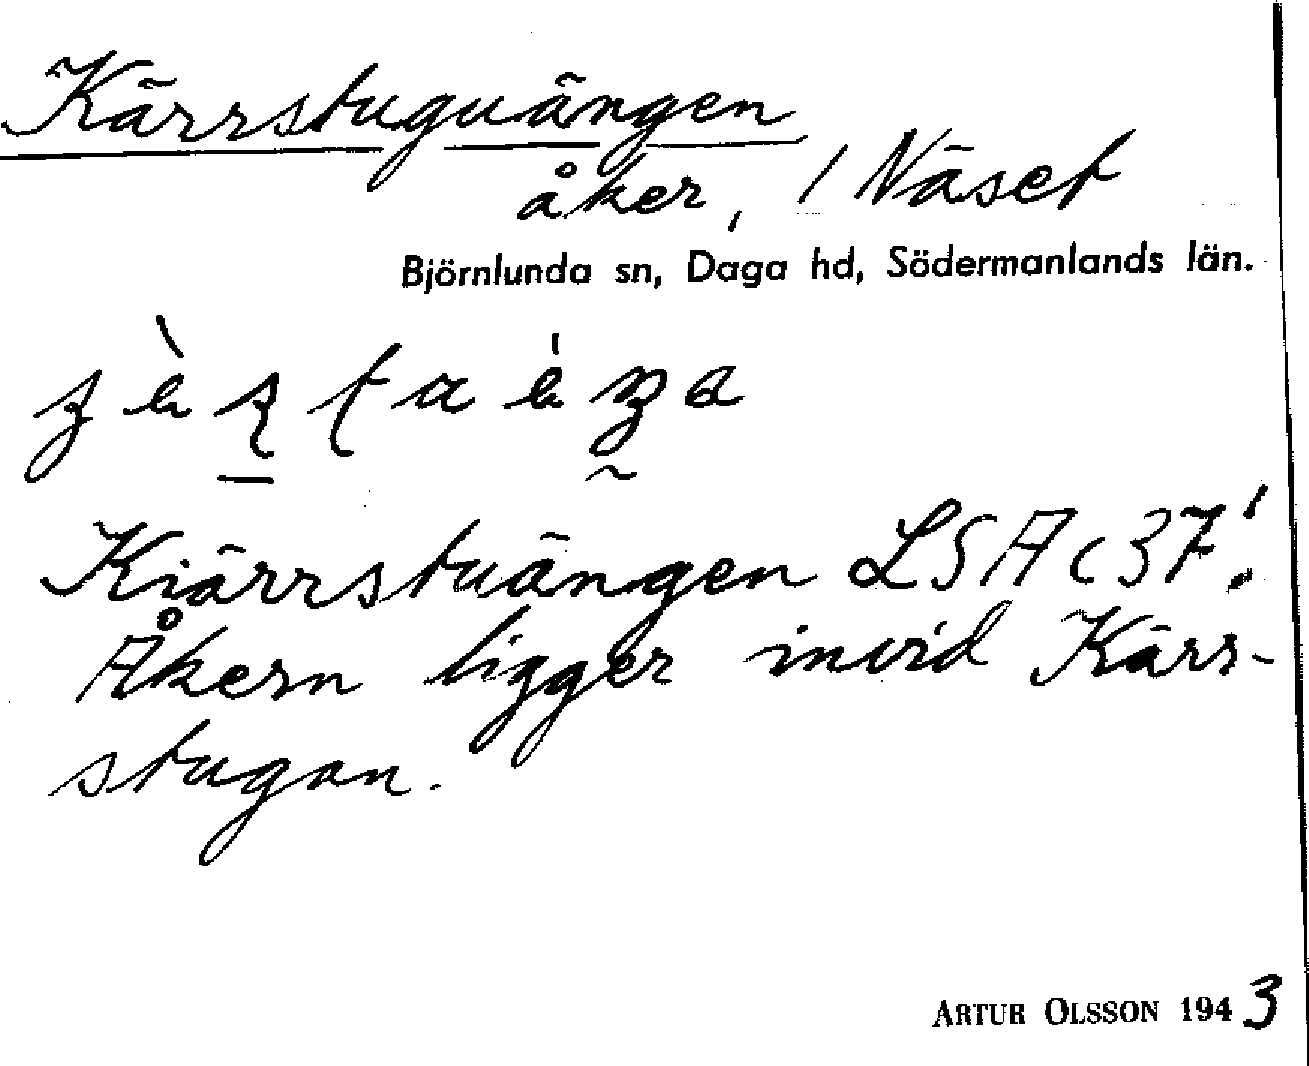 Kärrstuguängen
åker, / Näset
Björnlunda sn, Daga hd, Södermanlands län.
Kiärrstuängen LSA C37:1
Åkern ligger invid Kärr-
stugan.
ARTUR OLSSON 1943